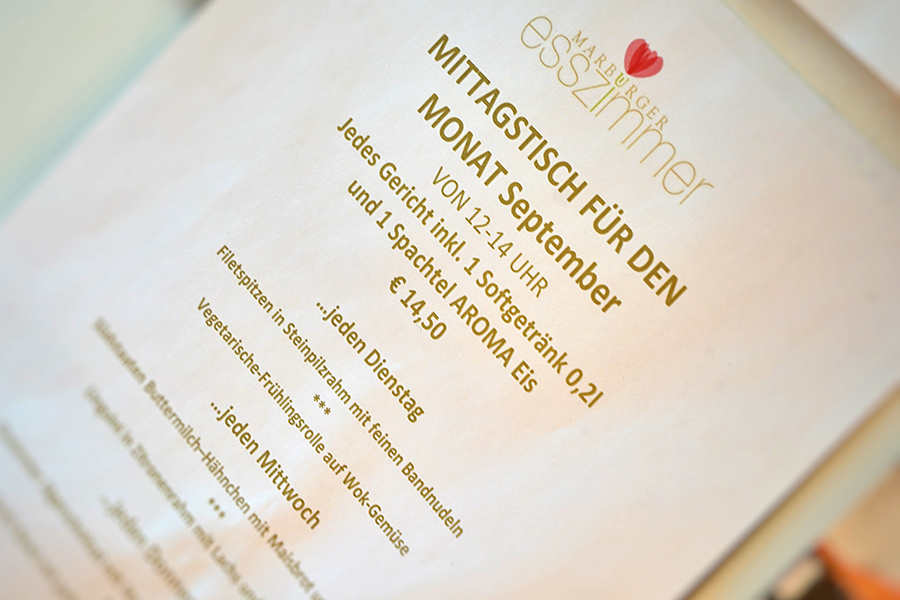 MARBURGER
esszimmer
MITTAGSTISCH FÜR DEN
MONAT September
VON 12-14 UHR
Jedes Gericht inkl. 1 Softgetränk 0,2l
und 1 Spachtel AROMA Eis
€ 14,50
...jeden Dienstag
Filetspitzen in Steinpilzrahm mit feinen Bandnudeln
***
Vegetarische-Frühlingsrolle auf Wok-Gemüse
...jeden Mittwoch
Südstaaten Buttermilch–Hähnchen mit Maisbrot
***
Linguini in Zitronenrahm mit Lachs
...jeden